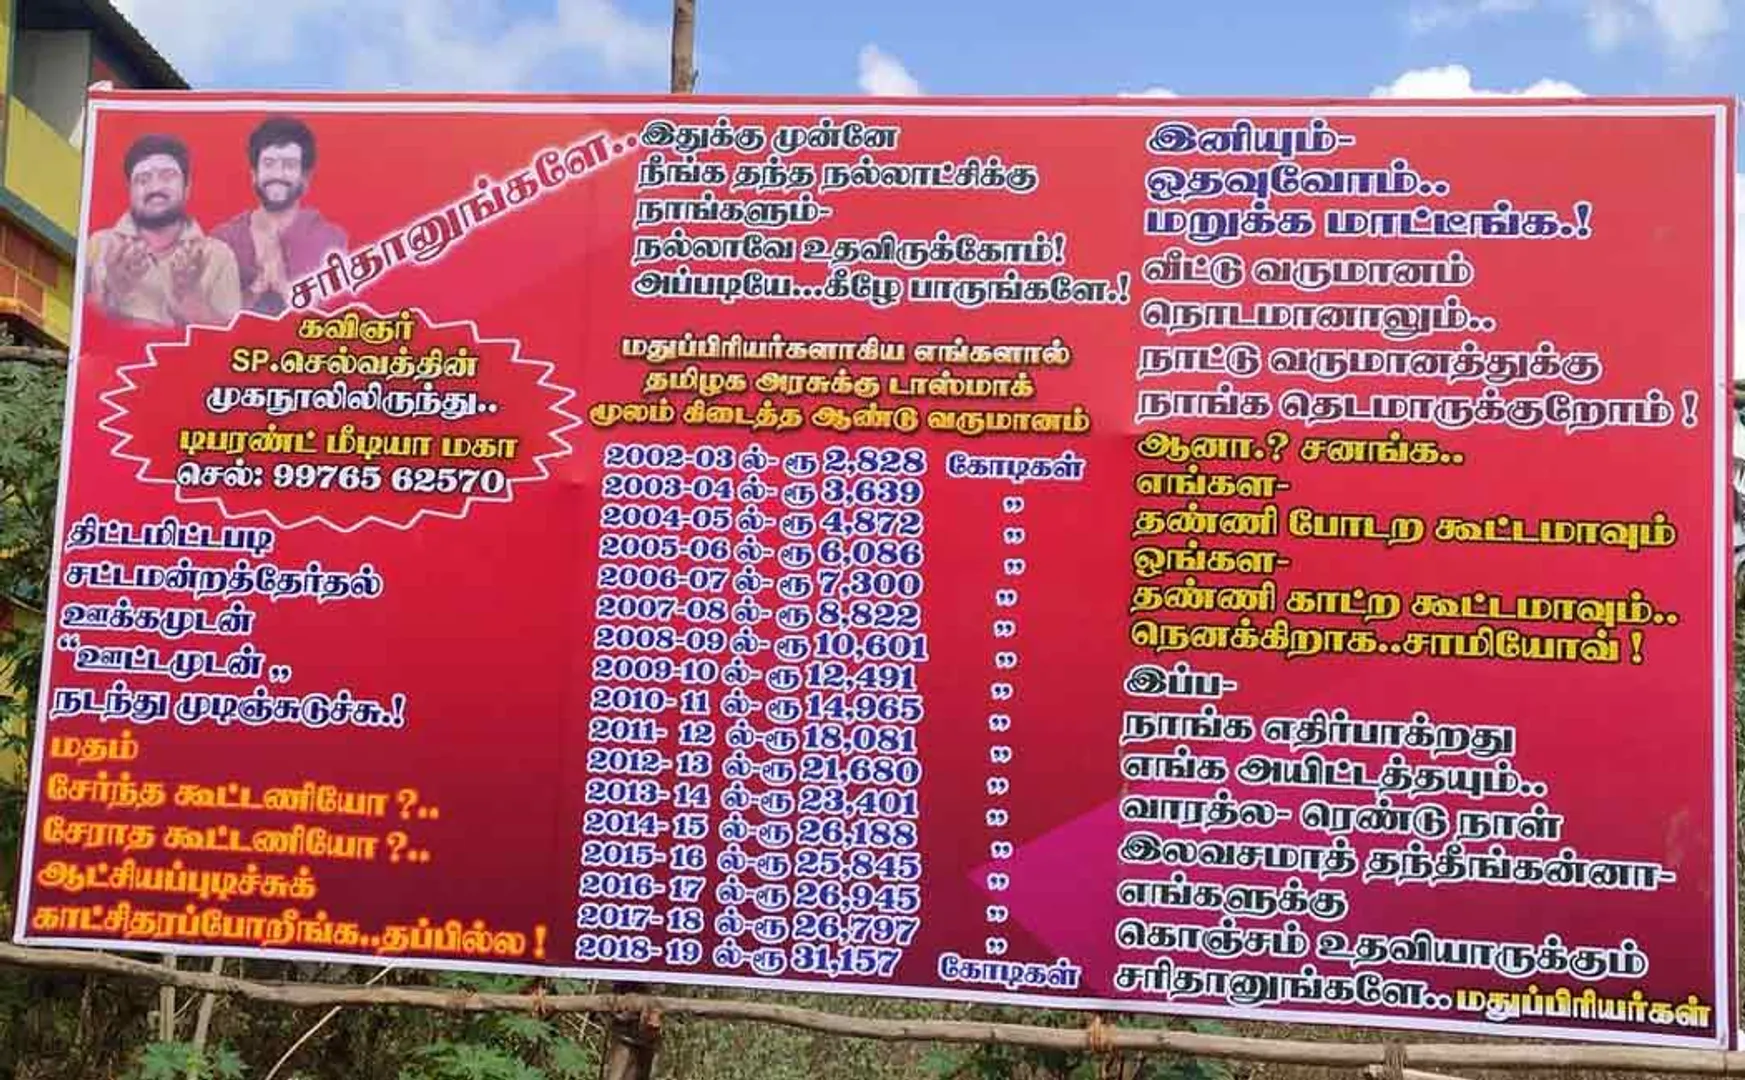 சரிதானுங்களே..
கவிஞர்
SP.செல்வத்தின்
முகநூலிலிருந்து..
டிபரண்ட் மீடியா மகா
செல்: 99765 62570
திட்டமிட்டபடி
சட்டமன்றத்தேர்தல்
ஊக்கமுடன்
“ஊட்டமுடன் ”
நடந்து முடிஞ்சுடுச்சு.!
மதம்
சேர்ந்த கூட்டணியோ ?..
சேராத கூட்டணியோ ?..
ஆட்சியப்புடிச்சுக்
காட்சிதரப்போறீங்க..தப்பில்ல !
இதுக்கு முன்னே
நீங்க தந்த நல்லாட்சிக்கு
நாங்களும்-
நல்லாவே உதவிருக்கோம்!
அப்படியே...கீழே பாருங்களே.!
மதுப்பிரியர்களாகிய எங்களால்
தமிழக அரசுக்கு டாஸ்மாக்
மூலம் கிடைத்த ஆண்டு வருமானம்
2002-03 ல்- ரூ 2,828 கோடிகள்
2003-04 ல்- ரூ 3,639 ”
2004-05 ல்- ரூ 4,872 ”
2005-06 ல்- ரூ 6,086 ”
2006-07 ல்- ரூ 7,300 ”
2007-08 ல்- ரூ 8,822 ”
2008-09 ல்- ரூ 10,601 ”
2009-10 ல்- ரூ 12,491 ”
2010-11 ல்- ரூ 14,965 ”
2011- 12 ல்-ரூ 18,081 ”
2012- 13 ல்-ரூ 21,680 ”
2013- 14 ல்-ரூ 23,401 ”
2014- 15 ல்-ரூ 26,188 ”
2015- 16 ல்-ரூ 25,845 ”
2016- 17 ல்-ரூ 26,945 ”
2017- 18 ல்-ரூ 26,797 ”
2018- 19 ல்-ரூ 31,157 கோடிகள்
இனியும்-
ஒதவுவோம்..
மறுக்க மாட்டீங்க.!
வீட்டு வருமானம்
நொடமானாலும்..
நாட்டு வருமானத்துக்கு
நாங்க தெடமாருக்குறோம் !
ஆனா.? சனங்க..
எங்கள-
தண்ணி போடற கூட்டமாவும்
ஒங்கள-
தண்ணி காட்ற கூட்டமாவும்..
நெனக்கிறாக..சாமியோவ் !
இப்ப-
நாங்க எதிர்பாக்றது
எங்க அயிட்டத்தயும்..
வாரத்ல- ரெண்டு நாள்
இலவசமாத் தந்தீங்கன்னா-
எங்களுக்கு
கொஞ்சம் உதவியாருக்கும்
சரிதானுங்களே.. மதுப்பிரியர்கள்